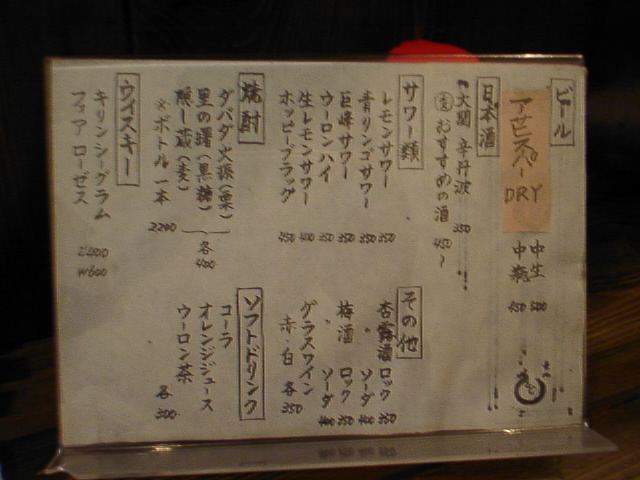 ビール
アサヒスーパー
DRY
中生
中瓶
日本酒
大関 辛丹波 350
おすすめの酒 450～
サワー類
レモンサワー 350
青リンゴサワー 350
巨峰サワー 350
ウーロンハイ 350
生レモンサワー 400
ホッピーブラック 450
その他
杏露酒 ロック 350
ソーダ
梅酒 ロック 350
ソーダ
グラスワイン
赤・白 各350
焼酎
ダバダ火振(栗)
里の曙(黒糖)
隠し蔵(麦)
各400
※ボトル一本 2200
ソフトドリンク
コーラ
オレンジジュース
ウーロン茶
各300
ウイスキー
キリンシーグラム
フォア ローゼス
W600